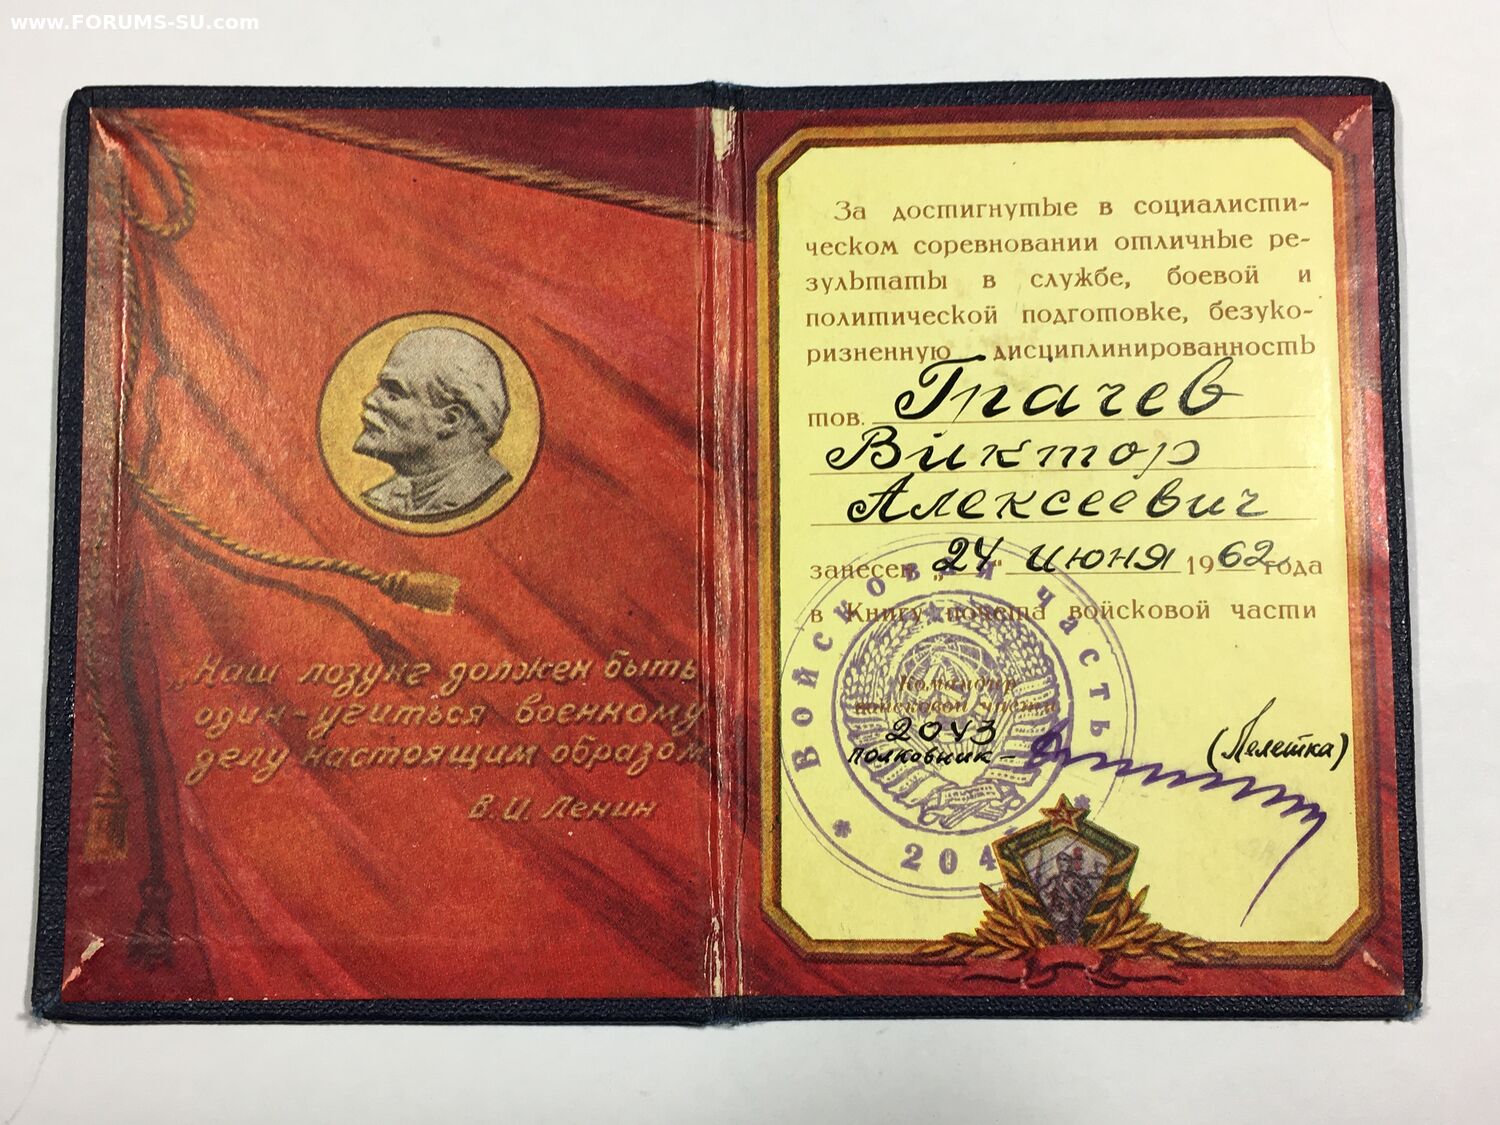 www.FORUMS-SU.com
„Наш лозунг должен быть
один - учиться военному
делу настоящим образом
В. И. Ленин
За достигнутые в социалисти-
ческом соревновании отличные ре-
зультаты в службе, боевой и
политической подготовке, безуко-
ризненную дисциплинированность
тов. Грачев
Виктор
Алексеевич
занесен „24" июня 1962 года
в Книгу почета войсковой части
Командир
войсковой части
2043
полковник - (Лелетка)
Войсковая часть
* 204 *